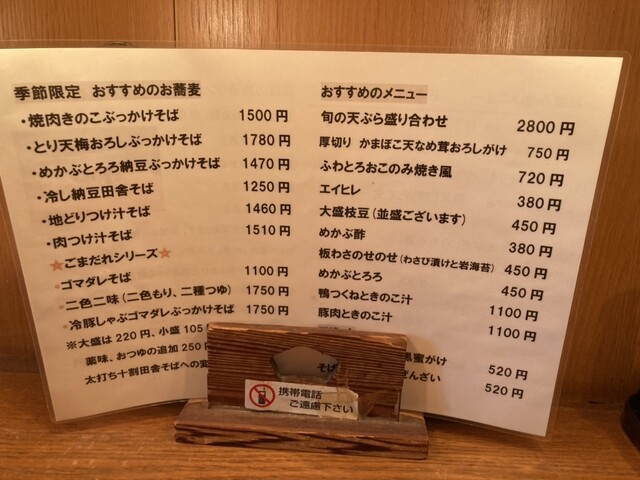 季節限定 おすすめのお蕎麦
・焼肉きのこぶっかけそば 1500 円
・とり天梅おろしぶっかけそば 1780 円
・めかぶとろろ納豆ぶっかけそば 1470 円
・冷し納豆田舎そば 1250 円
・地どりつけ汁そば 1460 円
・肉つけ汁そば 1510 円
★ごまだれシリーズ★
・ゴマダレそば 1100 円
・二色二味（二色もり、二種つゆ） 1750 円
・冷豚しゃぶゴマダレぶっかけそば 1750 円
※大盛は 220 円、小盛 105
薬味、おつゆの追加 250
太打ち十割田舎そばへの変
おすすめのメニュー
旬の天ぷら盛り合わせ 2800 円
厚切り かまぼこ天なめ茸おろしがけ 750 円
ふわとろおこのみ焼き風 720 円
エイヒレ 380 円
大盛枝豆（並盛ございます） 450 円
めかぶ酢 380 円
板わさのせのせ（わさび漬けと岩海苔） 450 円
めかぶとろろ 450 円
鴨つくねときのこ汁 1100 円
豚肉ときのこ汁 1100 円
黒蜜がけ 520 円
ぜんざい 520 円
そば
携帯電話
ご遠慮下さい